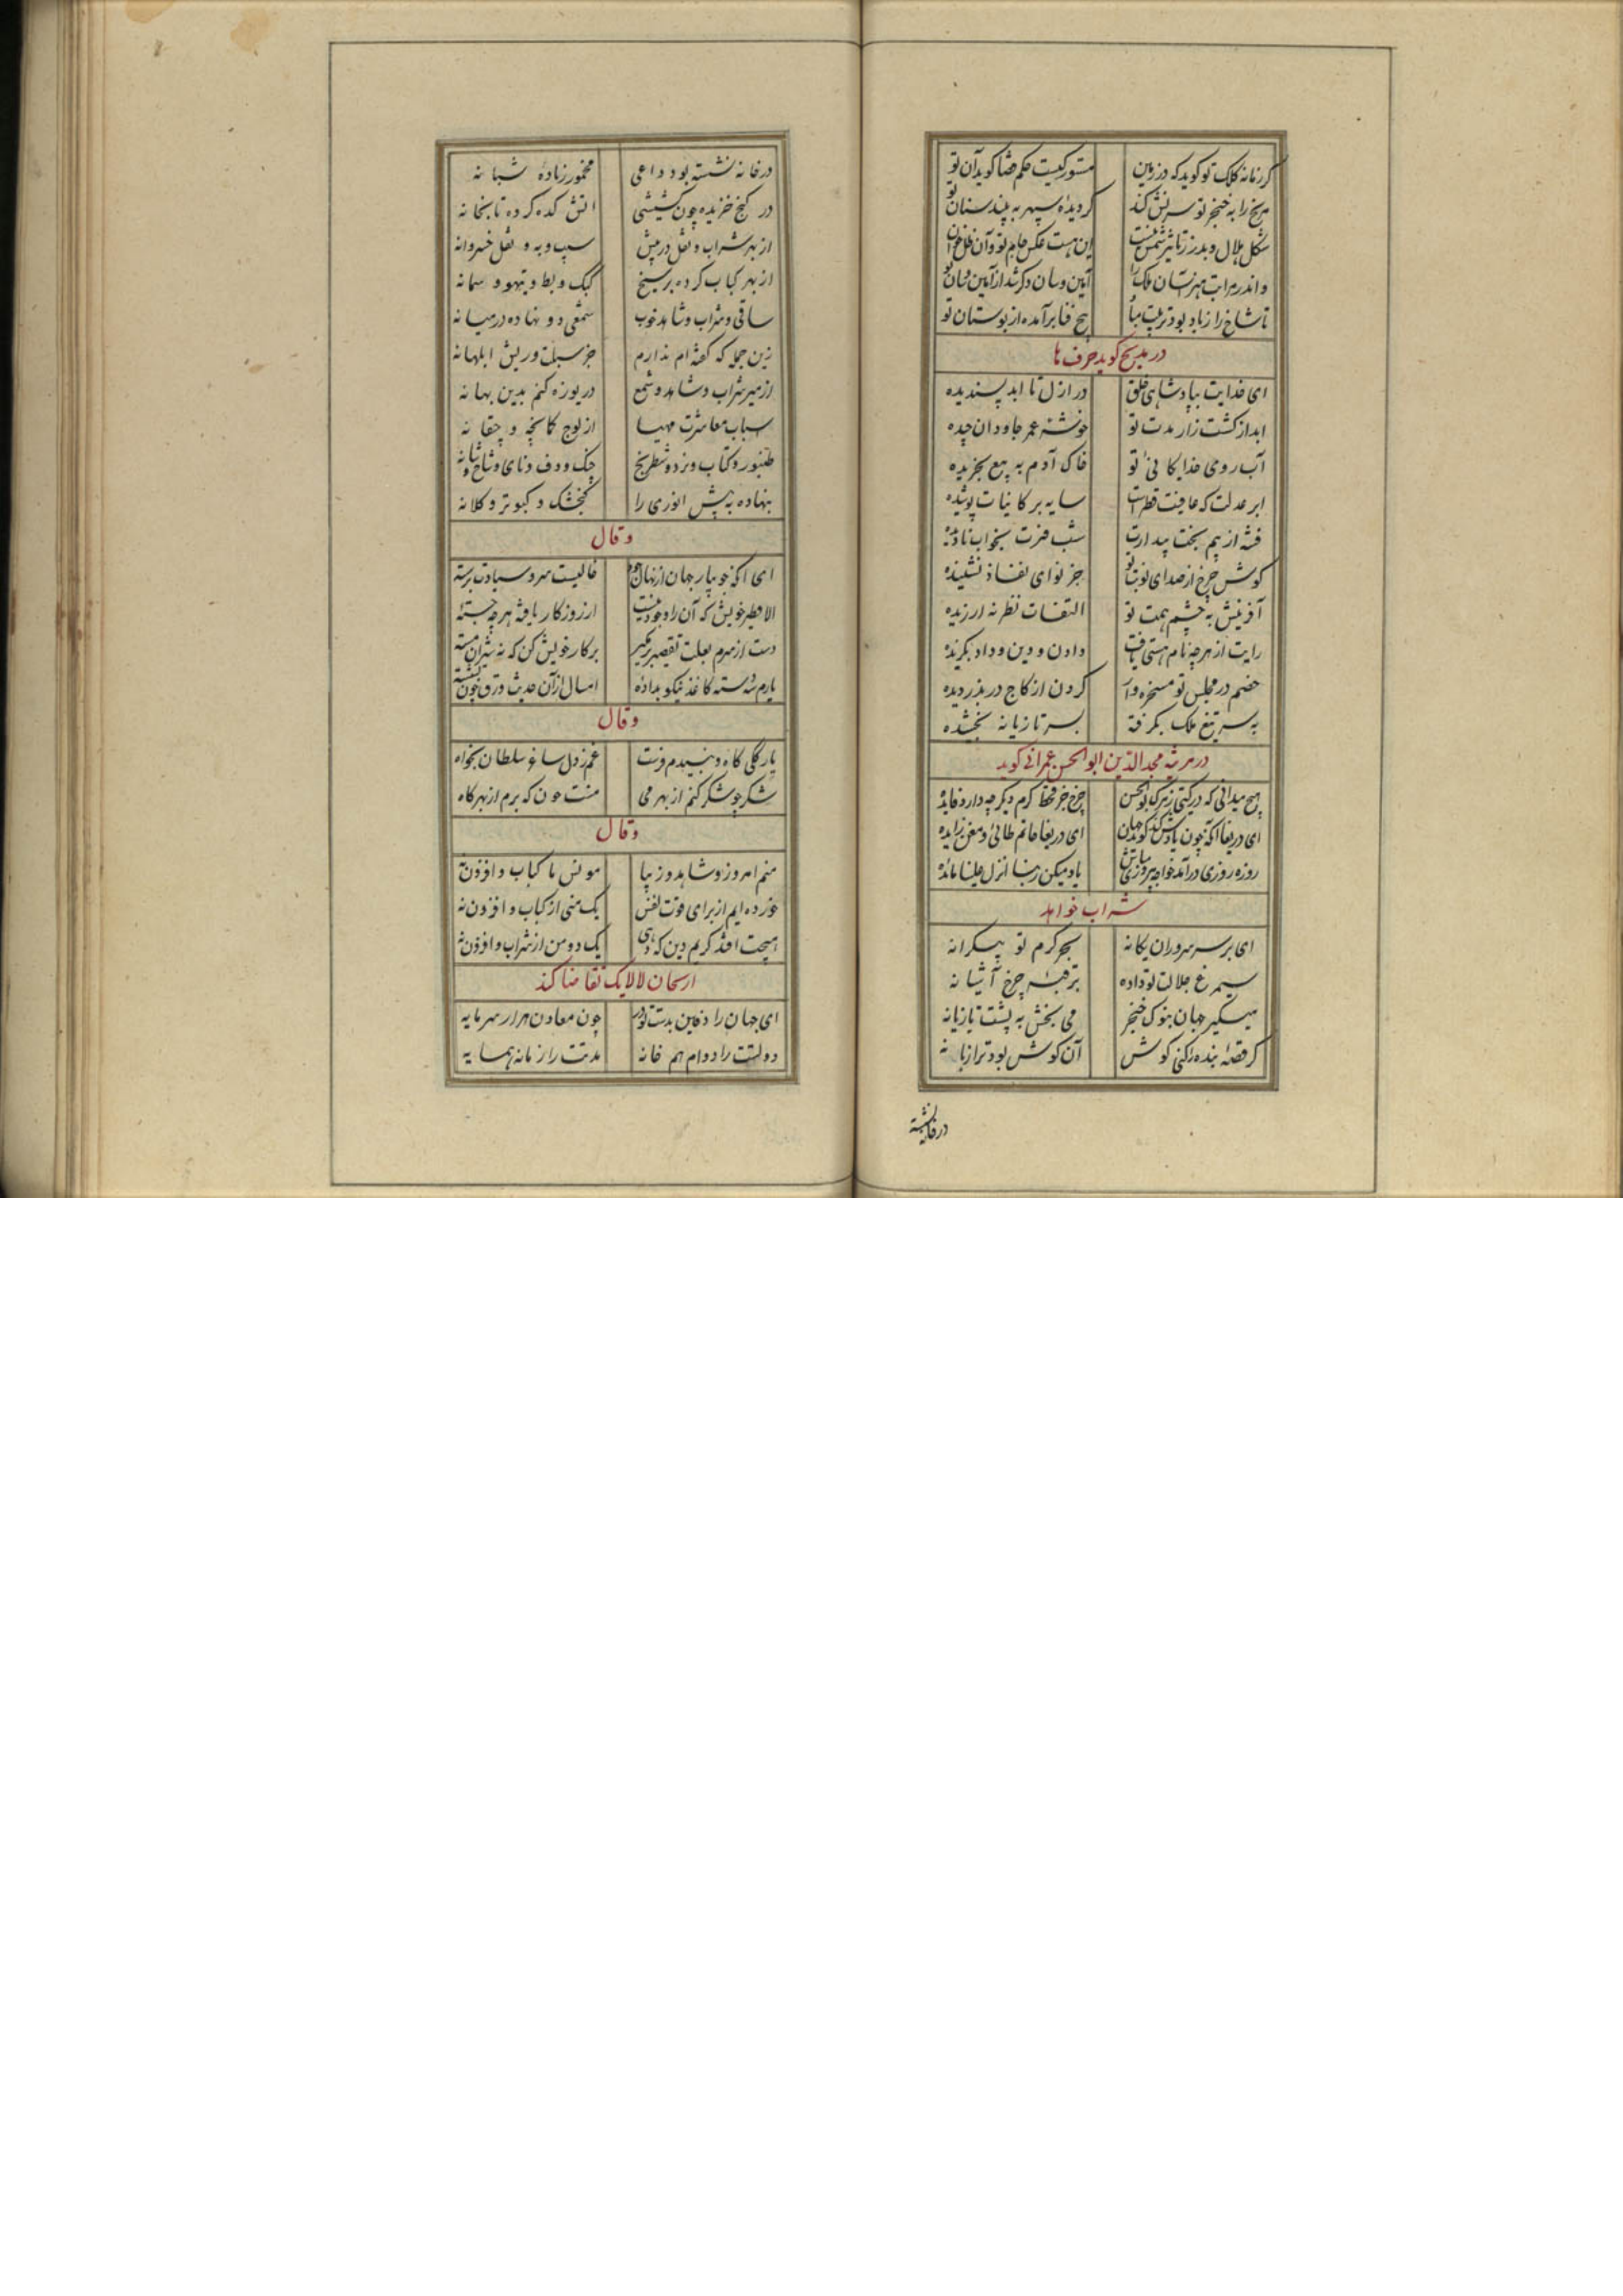 کر زمانه کلک تو کوید که در زمین مستور کیست حکم قضا کوید آن تو
مریخ را به خنجر تو سرزنش کند کردیده سپهر به پند سنان تو
شکل هلال و بدر ز تاثیر شمس نیست این هست عکس جام تو وآن ظل خوان
آیین وسان دکر شد از آیین وسان تو
تا شاخ را زباد بود تربیت مباد بیخ فنا برآمده از بوستان تو
در مدیح کوید حرف ها
ای خدایت بپادشاهی خلق در ازل تا ابد پسندیده
ابد از کشت زار مدت تو خوشه عمر جاودان چیده
آب روی خدایکانی تو خاک آدم به بیع بخریده
ابر عدلت که عافیت قطراست سایه بر کاینات پوشیده
فتنه از بیم بخت بیدارت شب فترت بخواب نادیده
کوش چرخ از صدای نوبت تو جز نوای نفاذ نشنیده
آفرینش به چشم همت تو التفات نظر نه ارزیده
رایت از هرچه نام هستی یافت دادن و دین و داد بکزیده
خصم در مجلس تو مسخره وار کردن از کاج در بدزدیده
به سر تیغ ملک بکرفته بسر تازیانه بخشیده
در مرثیه مجدالدین ابوالحسن عمرانی کوید
هیچ میدانی که در کیتی زمرک بوالحسن چرخ جز قحط کرم دیکر چه دارد فایده
ای دریغا آنکه چون یادش کند کوید جهان ای دریغا حاتم طائی و معن زایده
روزه روزی درآمد خواجه یاد میکن ربنا انزل علینا مائده
شراب خواهد
ای بر سر سروران یکانه بحر کرم تو بیکرانه
سیمرغ جلالت تو داده بر قبه چرخ آشیانه
میکیر جهان بنوک خنجر می بخش به پشت تازیانه
کر قصه بنده را کنی کوش آن کوش بود ترا زیانه
در خانه نشسته
در خانه نشسته بود داعی مخمور زباده شبانه
در کنج خزیده چون کشیشی اتش کده کرده تابخانه
از بهر شراب و نقل در پیش سیب و به و نقل خسروانه
از بهر کباب کرده بر سیخ کبک و بط و تیهو و سمانه
ساقی و شراب و شاهد خوب شمعی دو نهاده در میانه
زین جمله که کفته ام ندارم جز سبلت و ریش ابلهانه
از میر شراب و شاهد و شمع دریوزه کنم بدین بهانه
اسباب معاشرت مهیا از لوح کمانچه و چغانه
طنبور و کتاب و نرد و شطرنج چنک و دف و نای و شاخ و شانه
بنهاده به پیش انوری را کنجشک و کبوتر و کلانه
وقال
ای آنکه جویبار جهان از نهال جود خالیست سرو سیادت برسته
الا نظیر خویش که آن را وجود نیست از روزکار یافته هرچ جسته
دست از سرم بعلت تقصیر برمکیر بر کار خویش کن که نه
پارم سه دسته کاغذ نیکو بداده امسال از آن حدیث ورق چون
وقال
بارکی کاه و نبیدم فرست غم ز دل ساغر سلطان بخواه
شکر چو شکر کنم از بهر می منت چون که برم از بهر کاه
وقال
منم امروز و شاهد و زیبا مونس ما کباب و افزون نه
خورده ایم از برای قوت نفس یک منی از کباب و افزون نه
هیچت افتد کریم دین که دهی یک دو من از شراب و افزون نه
ازسحان لالایک تقاضا کند
ای جهان را دفاین بدست تو در چون معادن هزار سرمایه
دولتت را دوام هم خانه مدتت را زمانه همسایه